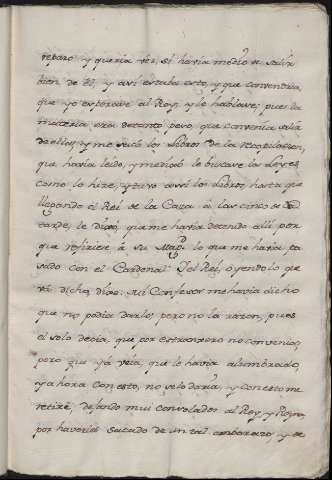 reparo y queria ver, si havia medio de salir
bien de el, y assi estaba esto, y que convendria,
que yo esperase al Rey, y le hablase; pues la
materia era de tanto peso, que convenia salir
de ellas, y me sacó los libros de la recopilacion,
que havia leido, y me dixo le buscase las Leyes
como lo hize, y tuve assi los libros, hasta que
llegando el Rei de la Caza à las cinco de la
tarde, le dixo, que me havia detenido alli por
que refiriese à su Magd. lo que me havia pa
sado con el Cardenal. Y el Rei, oyendo lo que
vá dicho, dixo: Mi Confesor me havia dicho
que no podia darlo; pero no la razon, pues
el solo decia, que por estrangero no convenia;
pero que ya veía, que le havia alumbrado,
y ahora con esto, no se lo daria, y con esto me
retiré, dejando mui consolados al Rey, y Reyna,
por haverlos sacado de un tal embarazo, y de